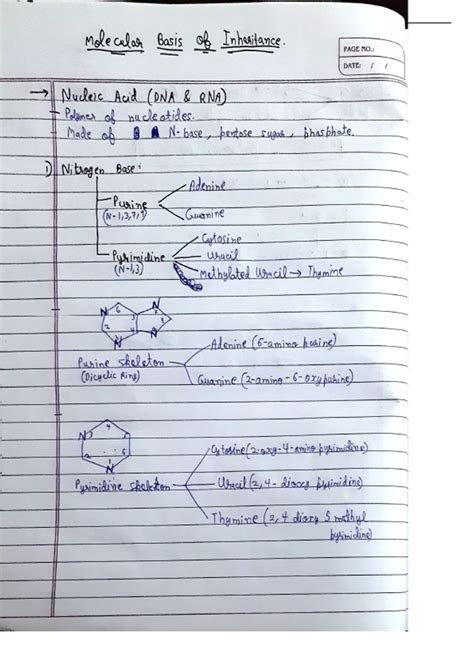 Molecular Basis of Inheritance.
PAGE NO.:
DATE: / /
→ Nucleic Acid (DNA & RNA)
Polymer of nucleotides.
Made of N-base, pentose sugar, phosphate.
1) Nitrogen Base:
Purine
(N-1,3,7,9)
Adenine
Guanine
Pyrimidine
(N-1,3)
Cytosine
Uracil
Methylated Uracil → Thymine
N 6 N
2 5 8
N 4 N
Purine skeleton
(Dicyclic Ring)
Adenine (6-amino purine)
Guanine (2-amino-6-oxypurine)
4
N
N
Pyrimidine skeleton
Cytosine (2-oxy-4-amino pyrimidine)
Uracil (2,4-dioxy pyrimidine)
Thymine (2,4 dioxy 5 methyl
pyrimidine)